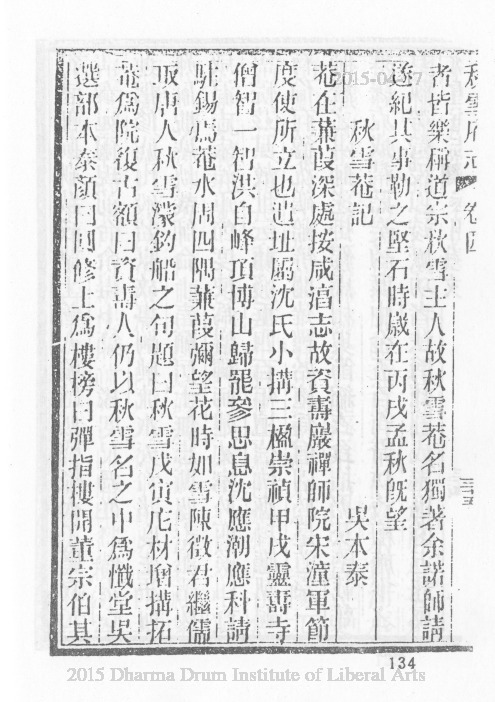 秋雪庵志 卷四
者皆樂稱道宗秋雪主人故秋雪菴名獨著余諾師請
遂紀其事勒之堅石時歲在丙戌孟秋既望
秋雪菴記 吳本泰
菴在蒹葭深處按咸淳志故資壽嚴禪師院宋潼軍節
度使所立也遺址屬沈氏小搆三楹崇禎甲戌靈壽寺
僧智一智洪自峰頂博山歸罷參思息沈應潮應科請
駐錫焉菴水周四隅蒹葭彌望花時如雪陳徵君繼儒
取唐人秋雪濛釣船之句題曰秋雪戊寅庀材增搆拓
菴爲院復古額曰資壽人仍以秋雪名之中爲懺堂吳
選部本泰顏曰圓修上爲樓榜曰彈指樓開董宗伯其
2015-04-27
134
2015 Dharma Drum Institute of Liberal Arts